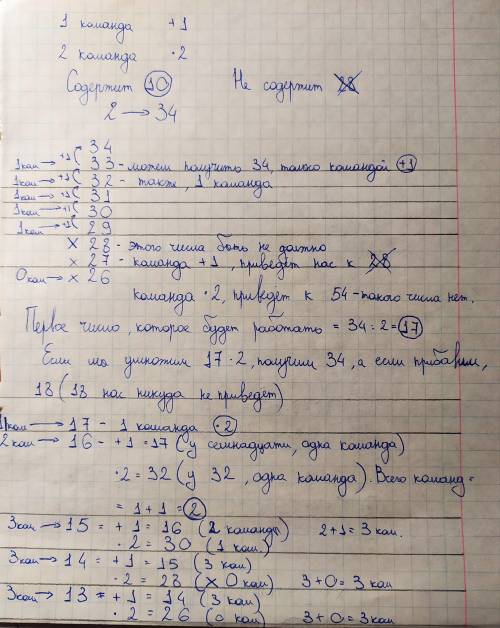 1 команда +1
2 команда ·2
Содержит 10 Не содержит 28
2 → 34
34
1ком → +1 33 - можем получить 34, только командой +1
1ком → +1 32 - также, 1 команда
1ком → +1 31
1ком → +1 30
1ком → +1 29
x 28 - этого числа быть не должно
x 27 - команда +1, приведёт нас к 28
0ком → x 26
команда ·2, приведёт к 54 - такого числа нет.
Первое число, которое будет работать = 34 : 2 = 17
Если мы умножим 17·2, получим 34, а если прибавим,
18 (18 нас никуда не приведёт)
1ком → 17 - 1 команда ·2
2ком → 16 - +1 = 17 (у семнадцати, одна команда)
·2 = 32 (у 32, одна команда). Всего команд =
= 1 + 1 = 2
3ком → 15 = +1 = 16 (2 команды) 2+1 = 3 ком.
·2 = 30 (1 ком.)
3ком → 14 = +1 = 15 (3 ком)
·2 = 28 (x 0 ком) 3+0 = 3 ком
3ком → 13 = +1 = 14 (3 ком)
·2 = 26 (0 ком) 3+0 = 3ком